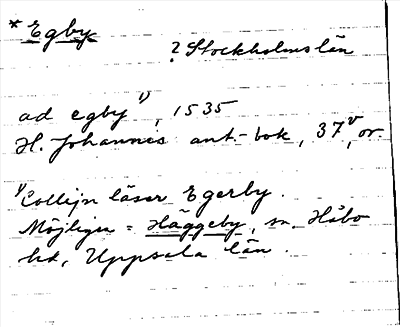 * Egby
? Stockholms län
ad egby¹⁾, 1535
H. Johannes ant.-bok, 37v, or.
¹⁾ Collijn läser Egerby.
Möjligen = Häggeby, sn. Håbo
hd, Uppsala län.